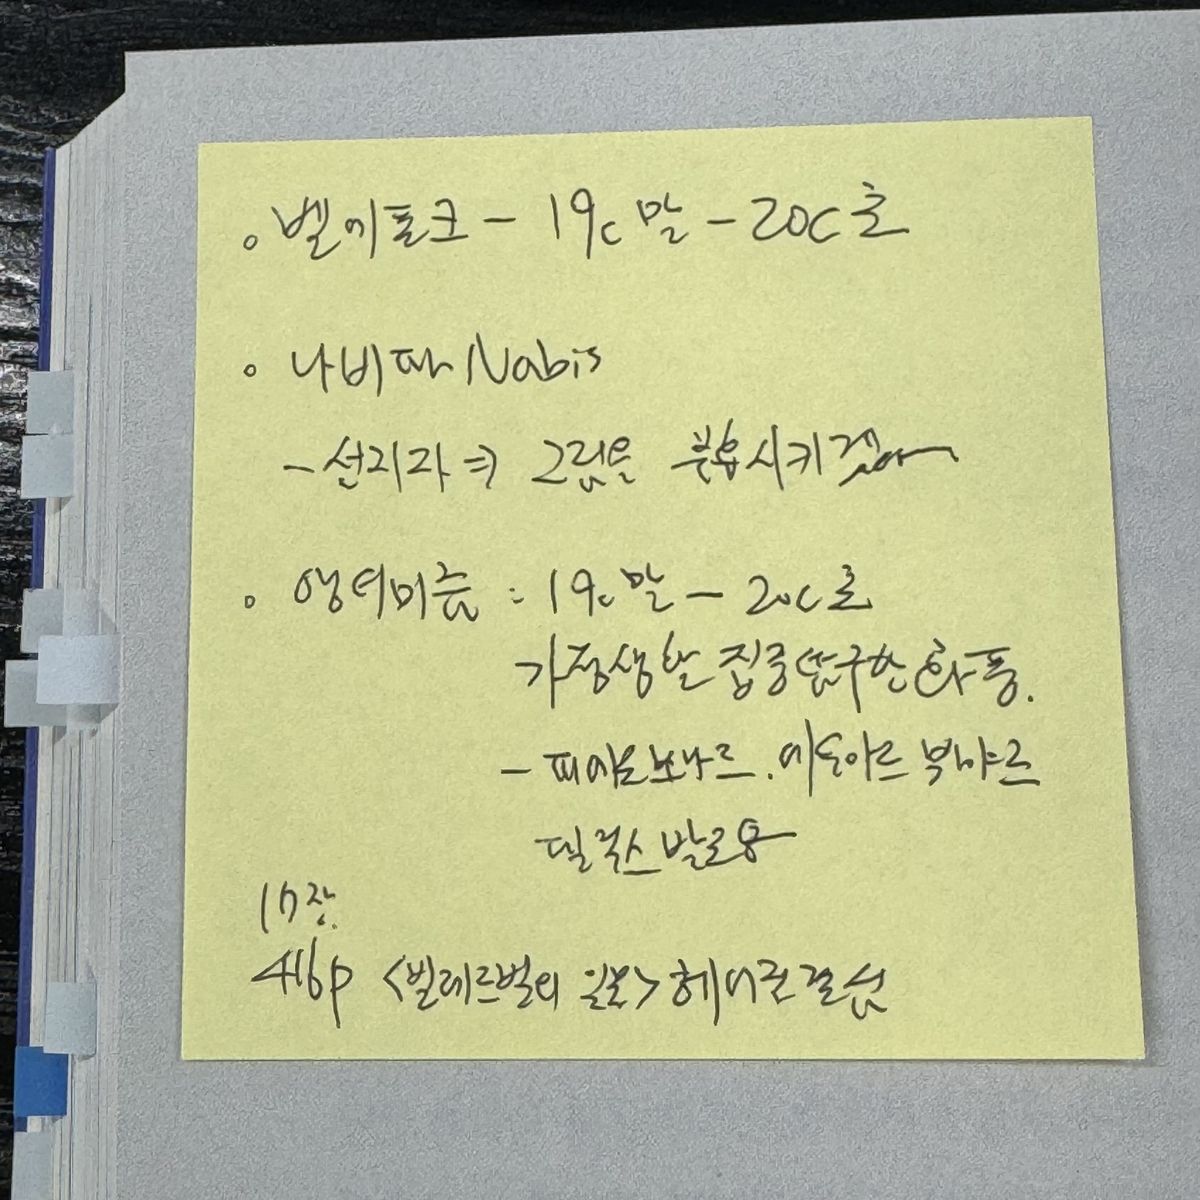 ◦ 벨에포크 - 19c 말 - 20C 초
◦ 나비파 Nabis
- 선지자 ⇒ 그림을 부흥시키겠다
◦ 앵티미즘 : 19c 말 - 20C 초
가정생활 집중 탐구한 화풍.
- 피에르 보나르. 에두아르 뷔야르
펠릭스 발로통
17장.
416p <빌레르빌의 일몰>